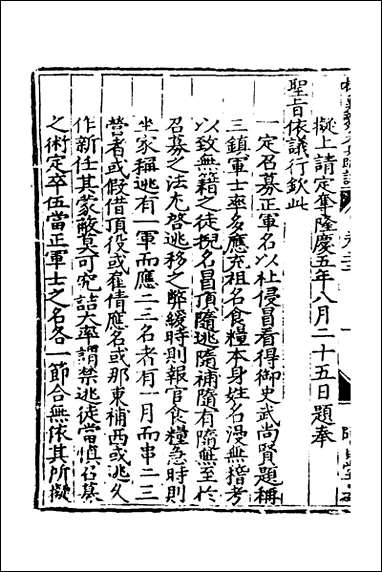 擬上請定奪隆慶五年八月二十五日題奉
聖旨依議行欽此
一定召募正軍名以杜侵冒看得御史武尚賢題稱
三鎮軍士率多應充祖名食糧本身姓名漫無稽考
以致無籍之徒捏名冒頂隨逃隨補隨有隨無至於
召募之法尤啓逃移之弊緩時則報官食糧急時則
坐家稱逃有一軍而應二三名者有一月而串二三
營者或假借頂役或雇倩應名或那東補西或逃久
作新任其蒙蔽莫可究詰大率謂禁逃徒當慎召募
之術定卒伍當正軍士之名各一節合無依其所擬